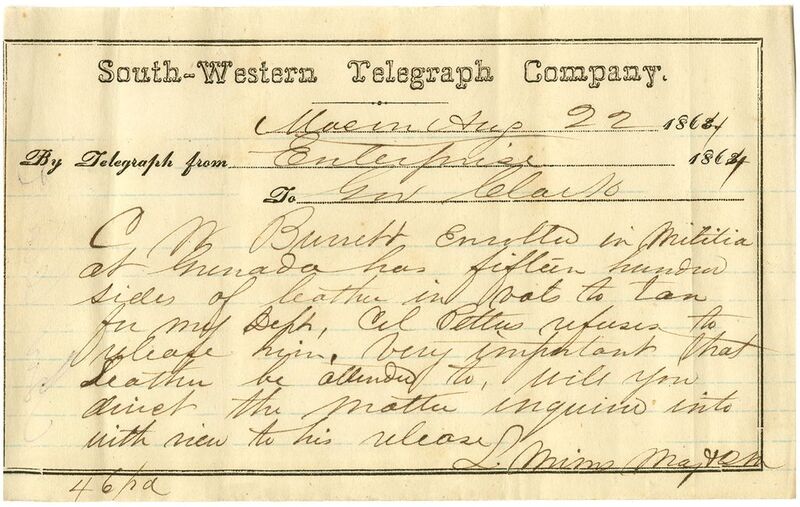 South-Western Telegraph Company.
Macon Aug 22 1864
By Telegraph from Enterprise 1864
To Gov Clark
C W Burrett Enrolled in Militia
at Grenada has fifteen hundred
sides of leather in vats to tan
for my Dept, Col Pettus refuses to
release him. Very important that
Leather be attended to, will you
direct the matter inquired into
with view to his release
L. Mims Maj & QM
46 pd